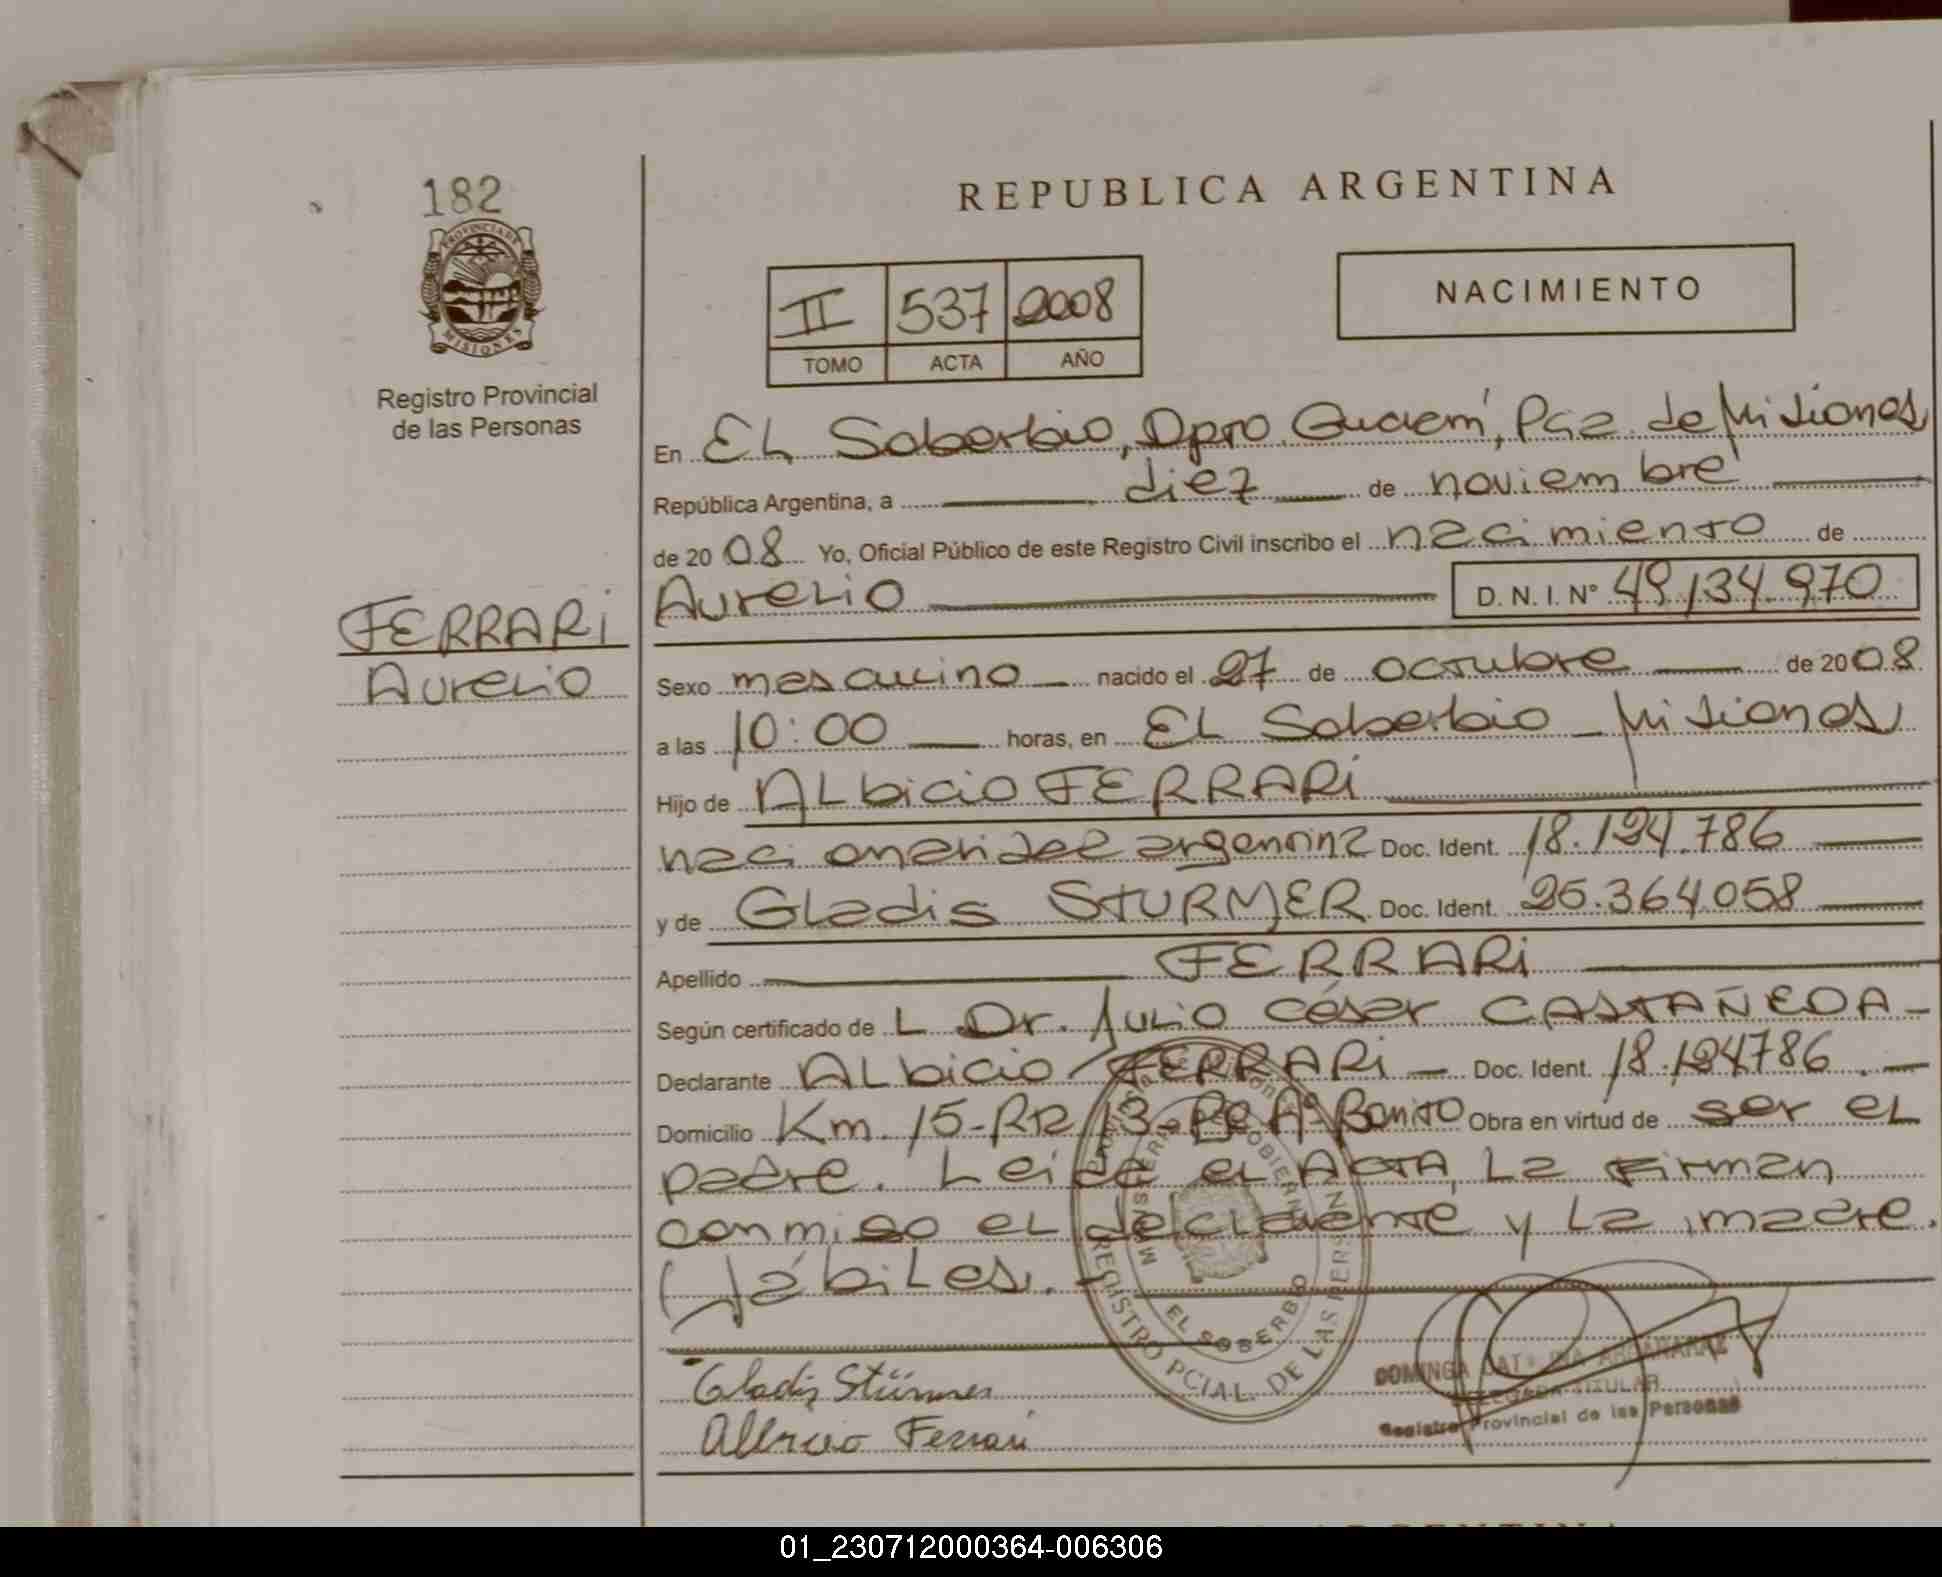 182
PROVINCIA DE
MISIONES
Registro Provincial
de las Personas
REPUBLICA ARGENTINA
II 537 2008
TOMO ACTA AÑO
NACIMIENTO
En EL Soberbio, Dpto. Guaraní, Pcia. de Misiones
República Argentina, a diez de noviembre
de 2008 Yo, Oficial Público de este Registro Civil inscribo el nacimiento de
Aurelio D. N. I. N° 49.134.970
FERRARI
Aurelio
Sexo masculino nacido el 27 de octubre de 2008
a las 10:00 horas, en EL Soberbio - Misiones
Hijo de ALbicio FERRARI
nacionalidad argentina Doc. Ident. 18.124.786
y de GLadis STURMER Doc. Ident. 25.364.058
Apellido FERRARI
Según certificado de L Dr. JuLio César CASTAÑEDA -
Declarante ALbicio FERRARI - Doc. Ident. 18.124786. -
Domicilio Km. 15-RP. 13 - Pje Aº Bonito Obra en virtud de ser eL
padre. Leída eL ACTA, La firman
conmigo eL declarante y La madre.
Hábiles.
Gladis Stürmer
Albicio Ferrari
EL SOBERBIO
REGISTRO PCIAL. DE LAS PERSONAS
DOMINGA
DELEGADA TITULAR
Registro Provincial de las Personas
01_230712000364-006306